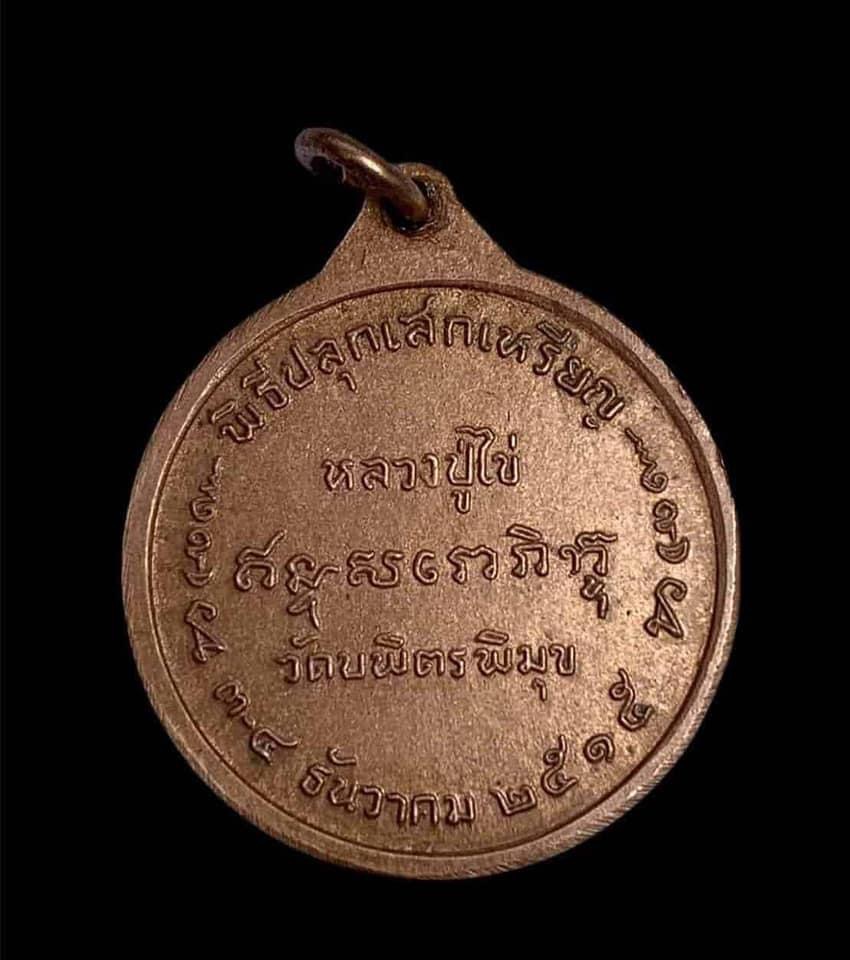 พิธีปลุกเสกเหรียญ
หลวงปู่ไข่
วัดบพิตรพิมุข
๓-๔ ธันวาคม ๒๕๑๕